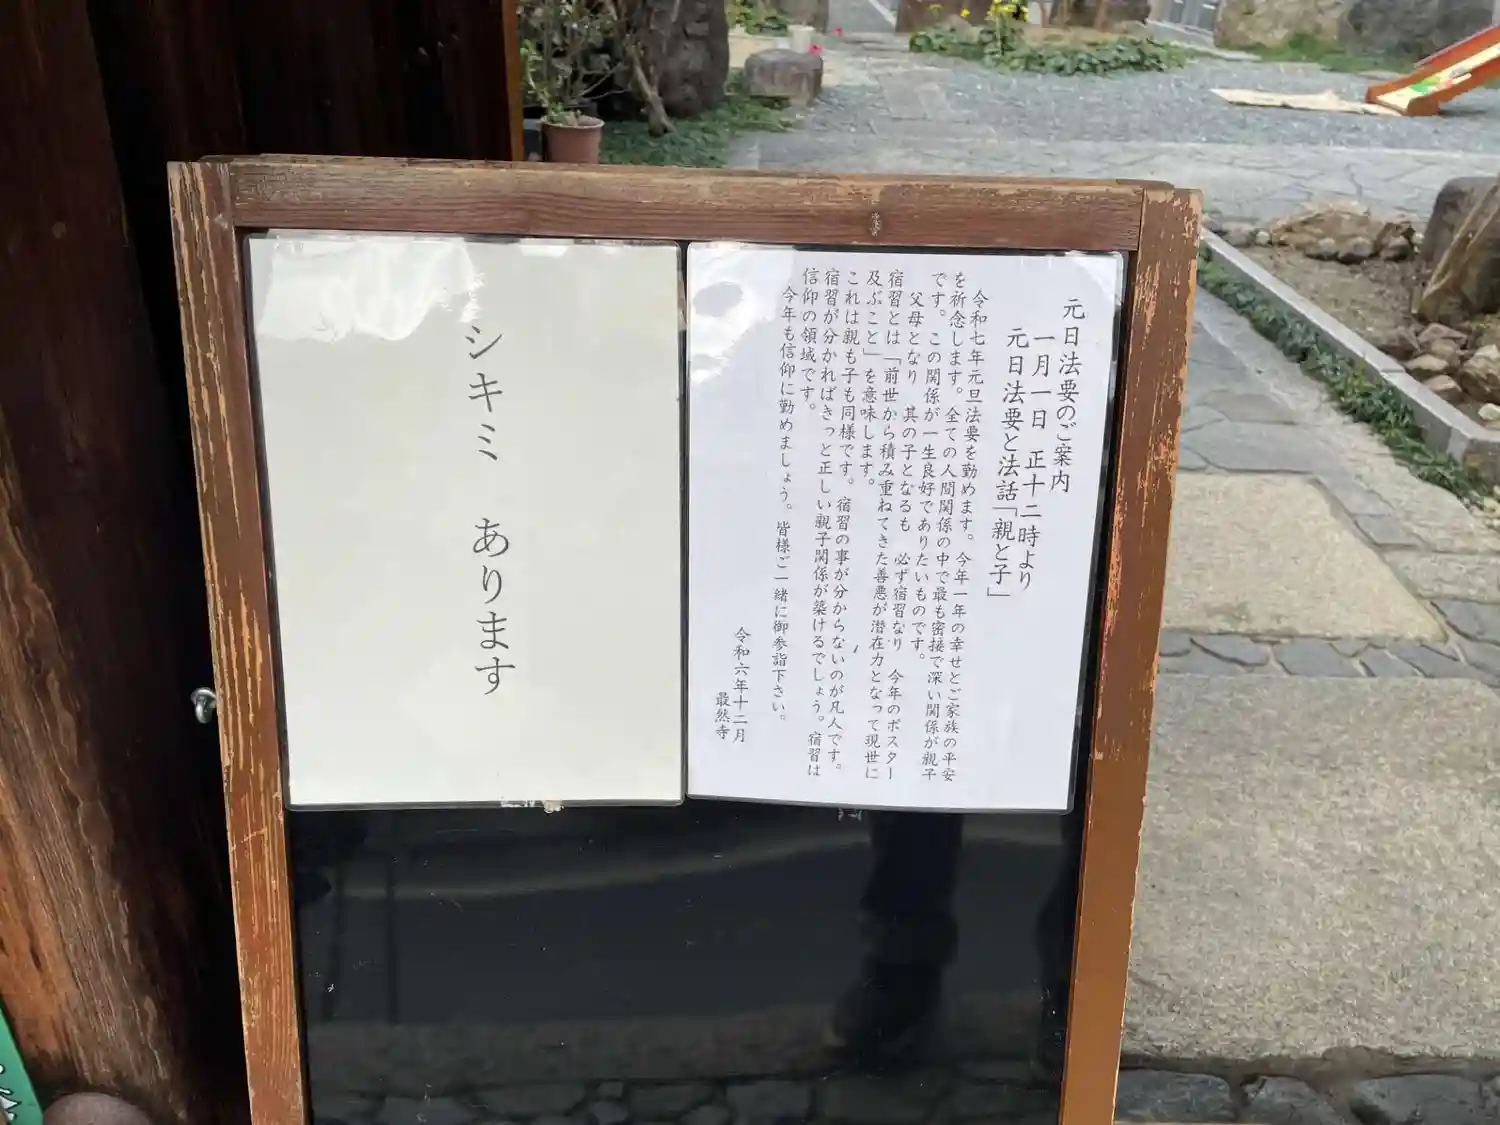 元日法要のご案内
一月一日 正十二時より
元日法要と法話「親と子」
令和七年元旦法要を勤めます。今年一年の幸せとご家族の平安
を祈念します。全ての人間関係の中で最も密接で深い関係が親子
です。この関係が一生良好でありたいものです。
父母となり 其の子となるも 必ず宿習なり 今年のポスター
宿習とは「前世から積み重ねてきた善悪が潜在力となって現世に
及ぶこと」を意味します。
これは親も子も同様です。宿習の事が分からないのが凡人です。
宿習が分かればきっと正しい親子関係が築けるでしょう。宿習は
信仰の領域です。
今年も信仰に勤めましょう。皆様ご一緒に御参詣下さい。
令和六年十二月
最然寺
シキミ あります